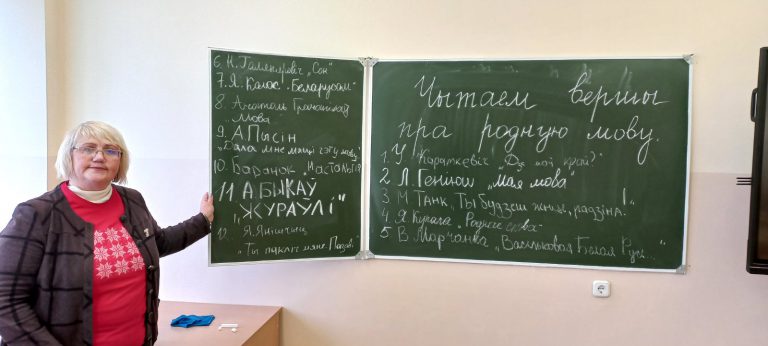 6. Н. Галіяровіч „Сон"
7. Я. Колас. „Беларусам"
8. Анатоль Грачанікаў
„Мова"
9. А Пысін
„Дала мне маці гэту мову"
10. Барачок „Настальгія
11 А. БЫКАЎ
„ЖУРАЎЛІ"
12. Я. Янішчыц
„Ты пакліч мяне. Пазаві
Чытаем вершы
пра родную мову.
1. У Караткевіч „Дзе мой край?"
2 Л. Геніюш „Мая мова"
3 М ТАНК. Ты будзеш жыць, радзіна!
4. Я Купала „Роднае слова
5 В Марчанка „Васільковая Белая Русь..."